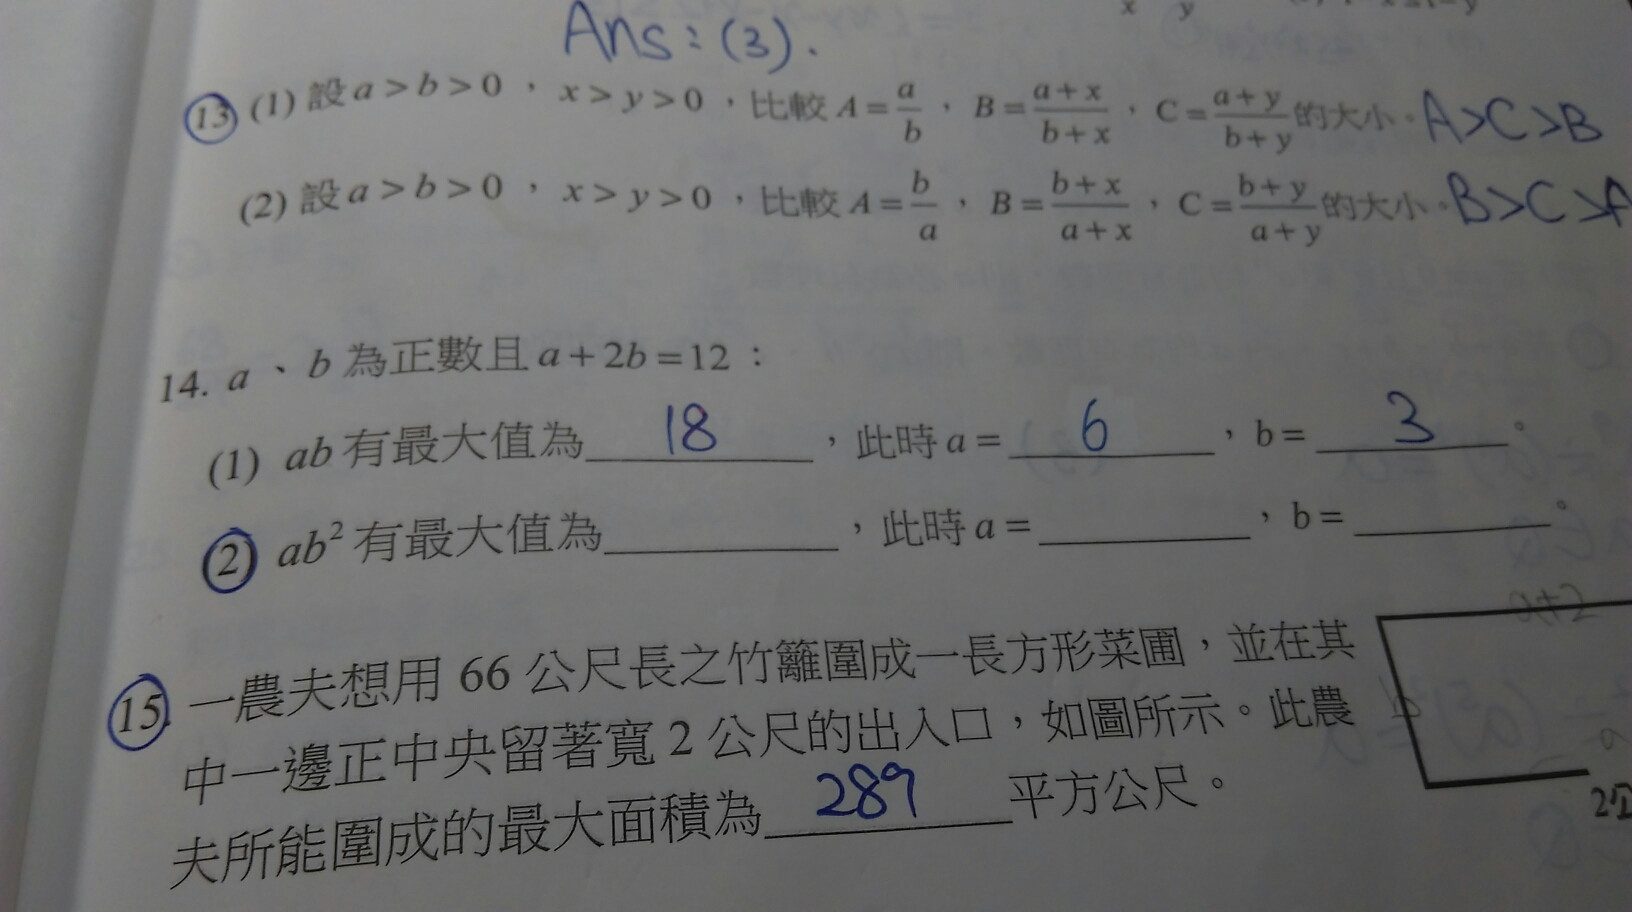 Ans:(3).
13 (1) 設 a > b > 0 ， x > y > 0 ，比較 A = a/b ， B = (a+x)/(b+x) ， C = (a+y)/(b+y) 的大小。 A>C>B
(2) 設 a > b > 0 ， x > y > 0 ，比較 A = b/a ， B = (b+x)/(a+x) ， C = (b+y)/(a+y) 的大小。 B>C>A
14. a 、 b 為正數且 a + 2b = 12 ：
(1) ab 有最大值為 18 ，此時 a = 6 ， b = 3 。
(2) ab² 有最大值為______，此時 a = ______， b = ______。
a+2
15. 一農夫想用 66 公尺長之竹籬圍成一長方形菜圃，並在其
中一邊正中央留著寬 2 公尺的出入口，如圖所示。此農
夫所能圍成的最大面積為 289 平方公尺。
b
2公